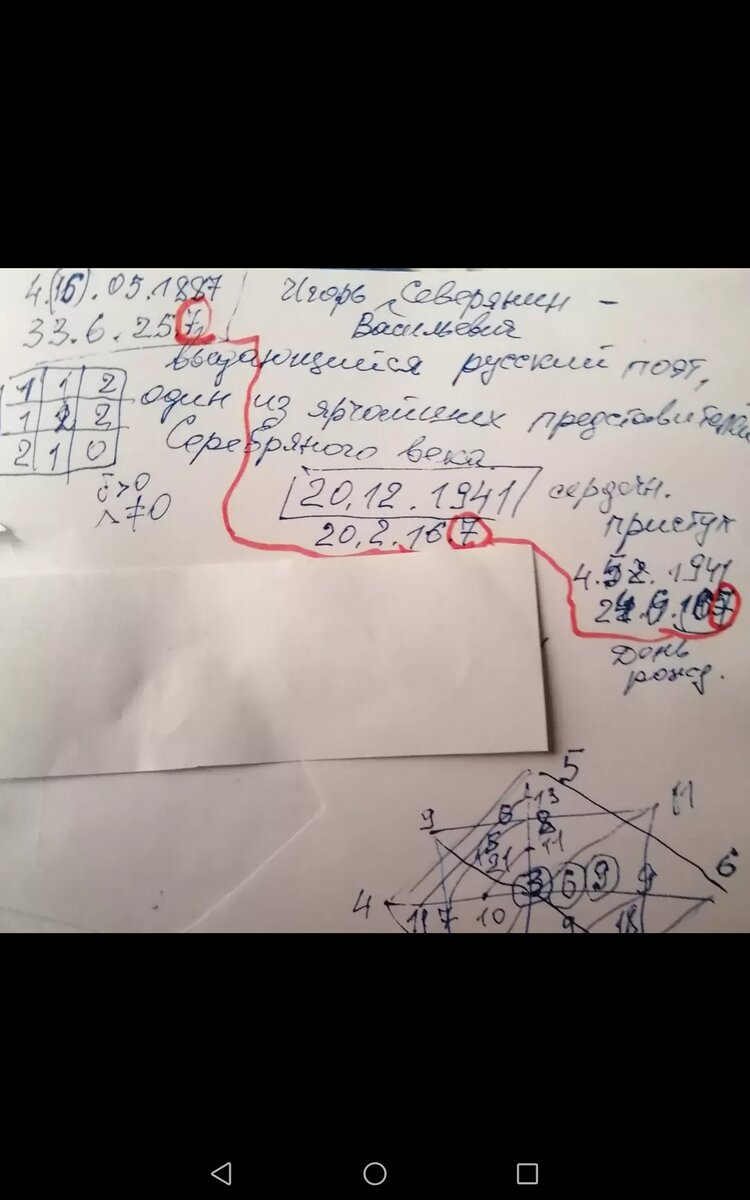 4.(16).05.1887
33.6.25.7
Игорь Северянин -
Васильевич
выдающийся русский поэт,
1 1 2
один из ярчайших представителей
1 2 2
Серебряного века.
2 1 0
>0
≠0
20.12.1941
сердечн.
приступ
20.2.16.7
1941
День
рожд.
5
13
11
9
6
8
11
21
6
3 6 9 9
4
11 7
10
9
18